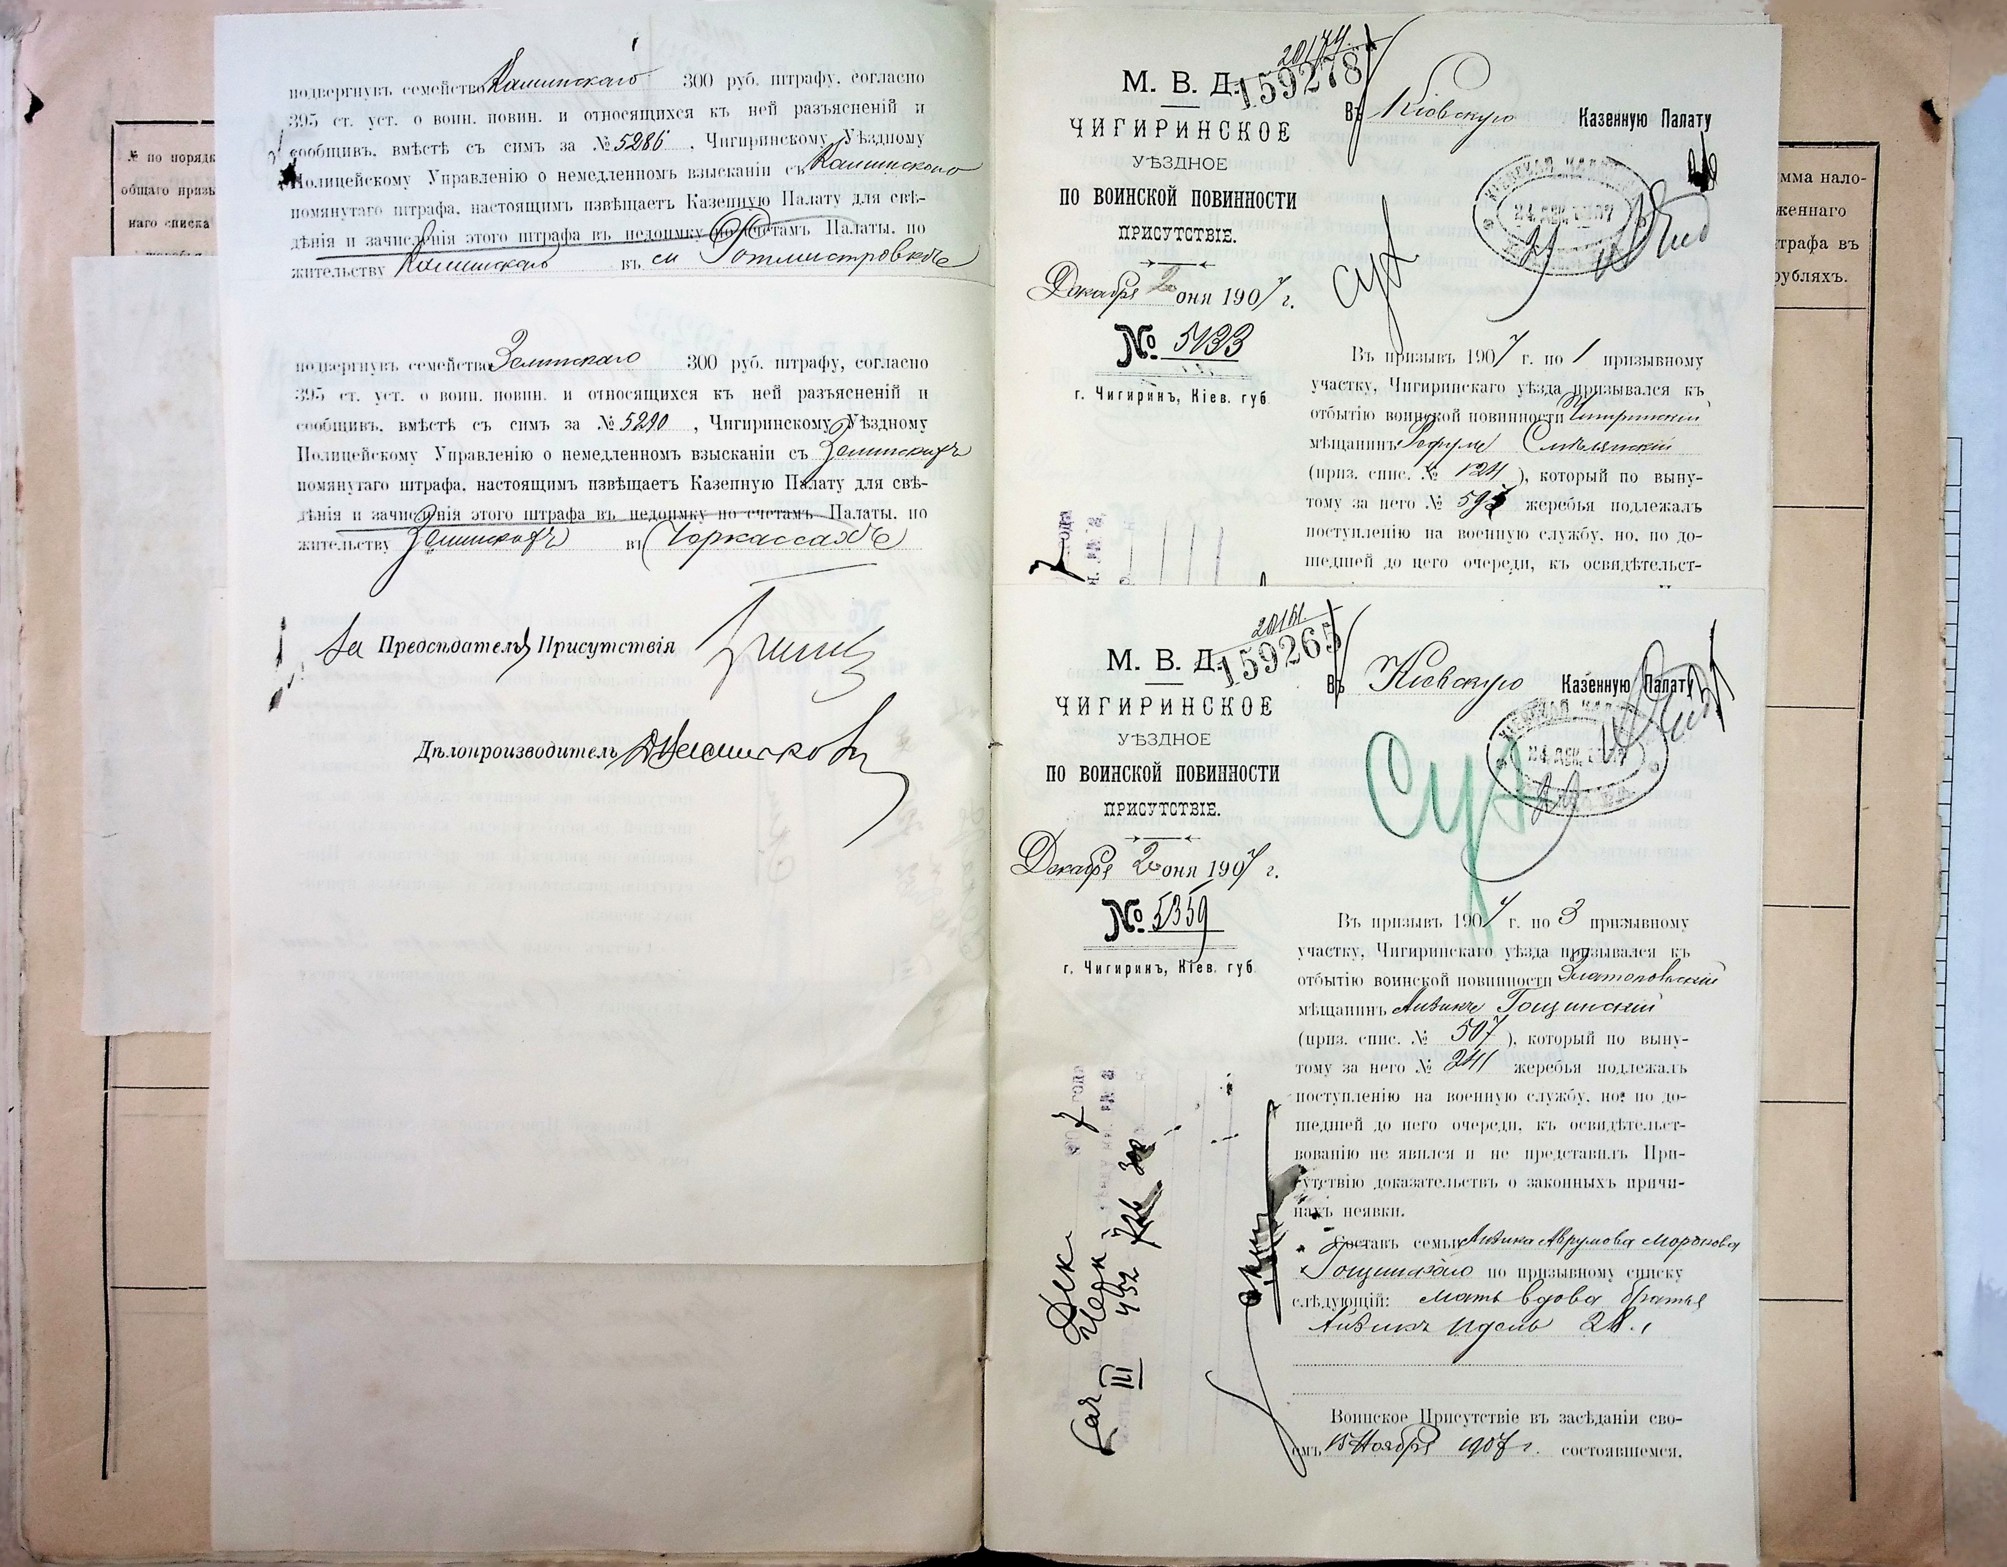 № по порядк
общаго призы
наго списка
мма нало-
женнаго
трафа въ
рубляхъ.
подвергнувъ семейство Каминскаго 300 руб. штрафу, согласно
395 ст. уст. о воин. повин. и относящихся къ ней разъясненій и
сообщивъ, вмѣстѣ съ симъ за № 5286, Чигиринскому Уѣздному
Полицейскому Управленію о немедленномъ взысканіи съ Каминскаго
помянутаго штрафа, настоящимъ извѣщаетъ Казенную Палату для свѣ-
дѣнія и зачисленія этого штрафа въ недоимку по счетамъ Палаты, по
жительству Каминскаго въ м Ротмистровкѣ
подвергнувъ семейство 300 руб. штрафу, согласно
395 ст. уст. о воин. повин. и относящихся къ ней разъясненій и
сообщивъ, вмѣстѣ съ симъ за № 5290, Чигиринскому Уѣздному
Полицейскому Управленію о немедленномъ взысканіи съ
помянутаго штрафа, настоящимъ извѣщаетъ Казенную Палату для свѣ-
дѣнія и зачисленія этого штрафа въ недоимку по счетамъ Палаты, по
жительству въ Черкассахъ
За Предсѣдателя Присутствія
Дѣлопроизводитель
159278
М. В. Д.
ЧИГИРИНСКОЕ
УѢЗДНОЕ
ПО ВОИНСКОЙ ПОВИННОСТИ
ПРИСУТСТВІЕ.
Декабря 2 оня 1907 г.
№ 5133
г. Чигиринъ, Кіев. губ.
Въ Кіевскую Казенную Палату
24 ДЕК. 1907
Въ призывъ 1907 г. по 1 призывному
участку, Чигиринскаго уѣзда призывался къ
отбытію воинской повинности Чигиринскій
мѣщанинъ Смѣлянскій
(приз. спис. № 124), который по выну-
тому за него № жеребья подлежалъ
поступленію на военную службу, но, по до-
шедшей до него очереди, къ освидѣтельст-
159265
М. В. Д.
ЧИГИРИНСКОЕ
УѢЗДНОЕ
ПО ВОИНСКОЙ ПОВИННОСТИ
ПРИСУТСТВІЕ.
Декабря 2 оня 1907 г.
№ 5359
г. Чигиринъ, Кіев. губ.
Въ Кіевскую Казенную Палату
24 ДЕК. 1907
Въ призывъ 1907 г. по 3 призывному
участку, Чигиринскаго уѣзда призывался къ
отбытію воинской повинности Златопольскій
мѣщанинъ Айзикъ Гощинскій
(приз. спис. № 507), который по выну-
тому за него № 241 жеребья подлежалъ
поступленію на военную службу, но, по до-
шедшей до него очереди, къ освидѣтельст-
вованію не явился и не представилъ При-
сутствію доказательствъ о законныхъ причи-
нахъ неявки.
Составъ семьи Айзика Аврумова Моркова
Гощинскаго по призывному списку
слѣдующій: мать вдова братья
Айзикъ Идель
Воинское Присутствіе въ засѣданіи сво-
емъ 15 Ноября 1907 г. состоявшемся,